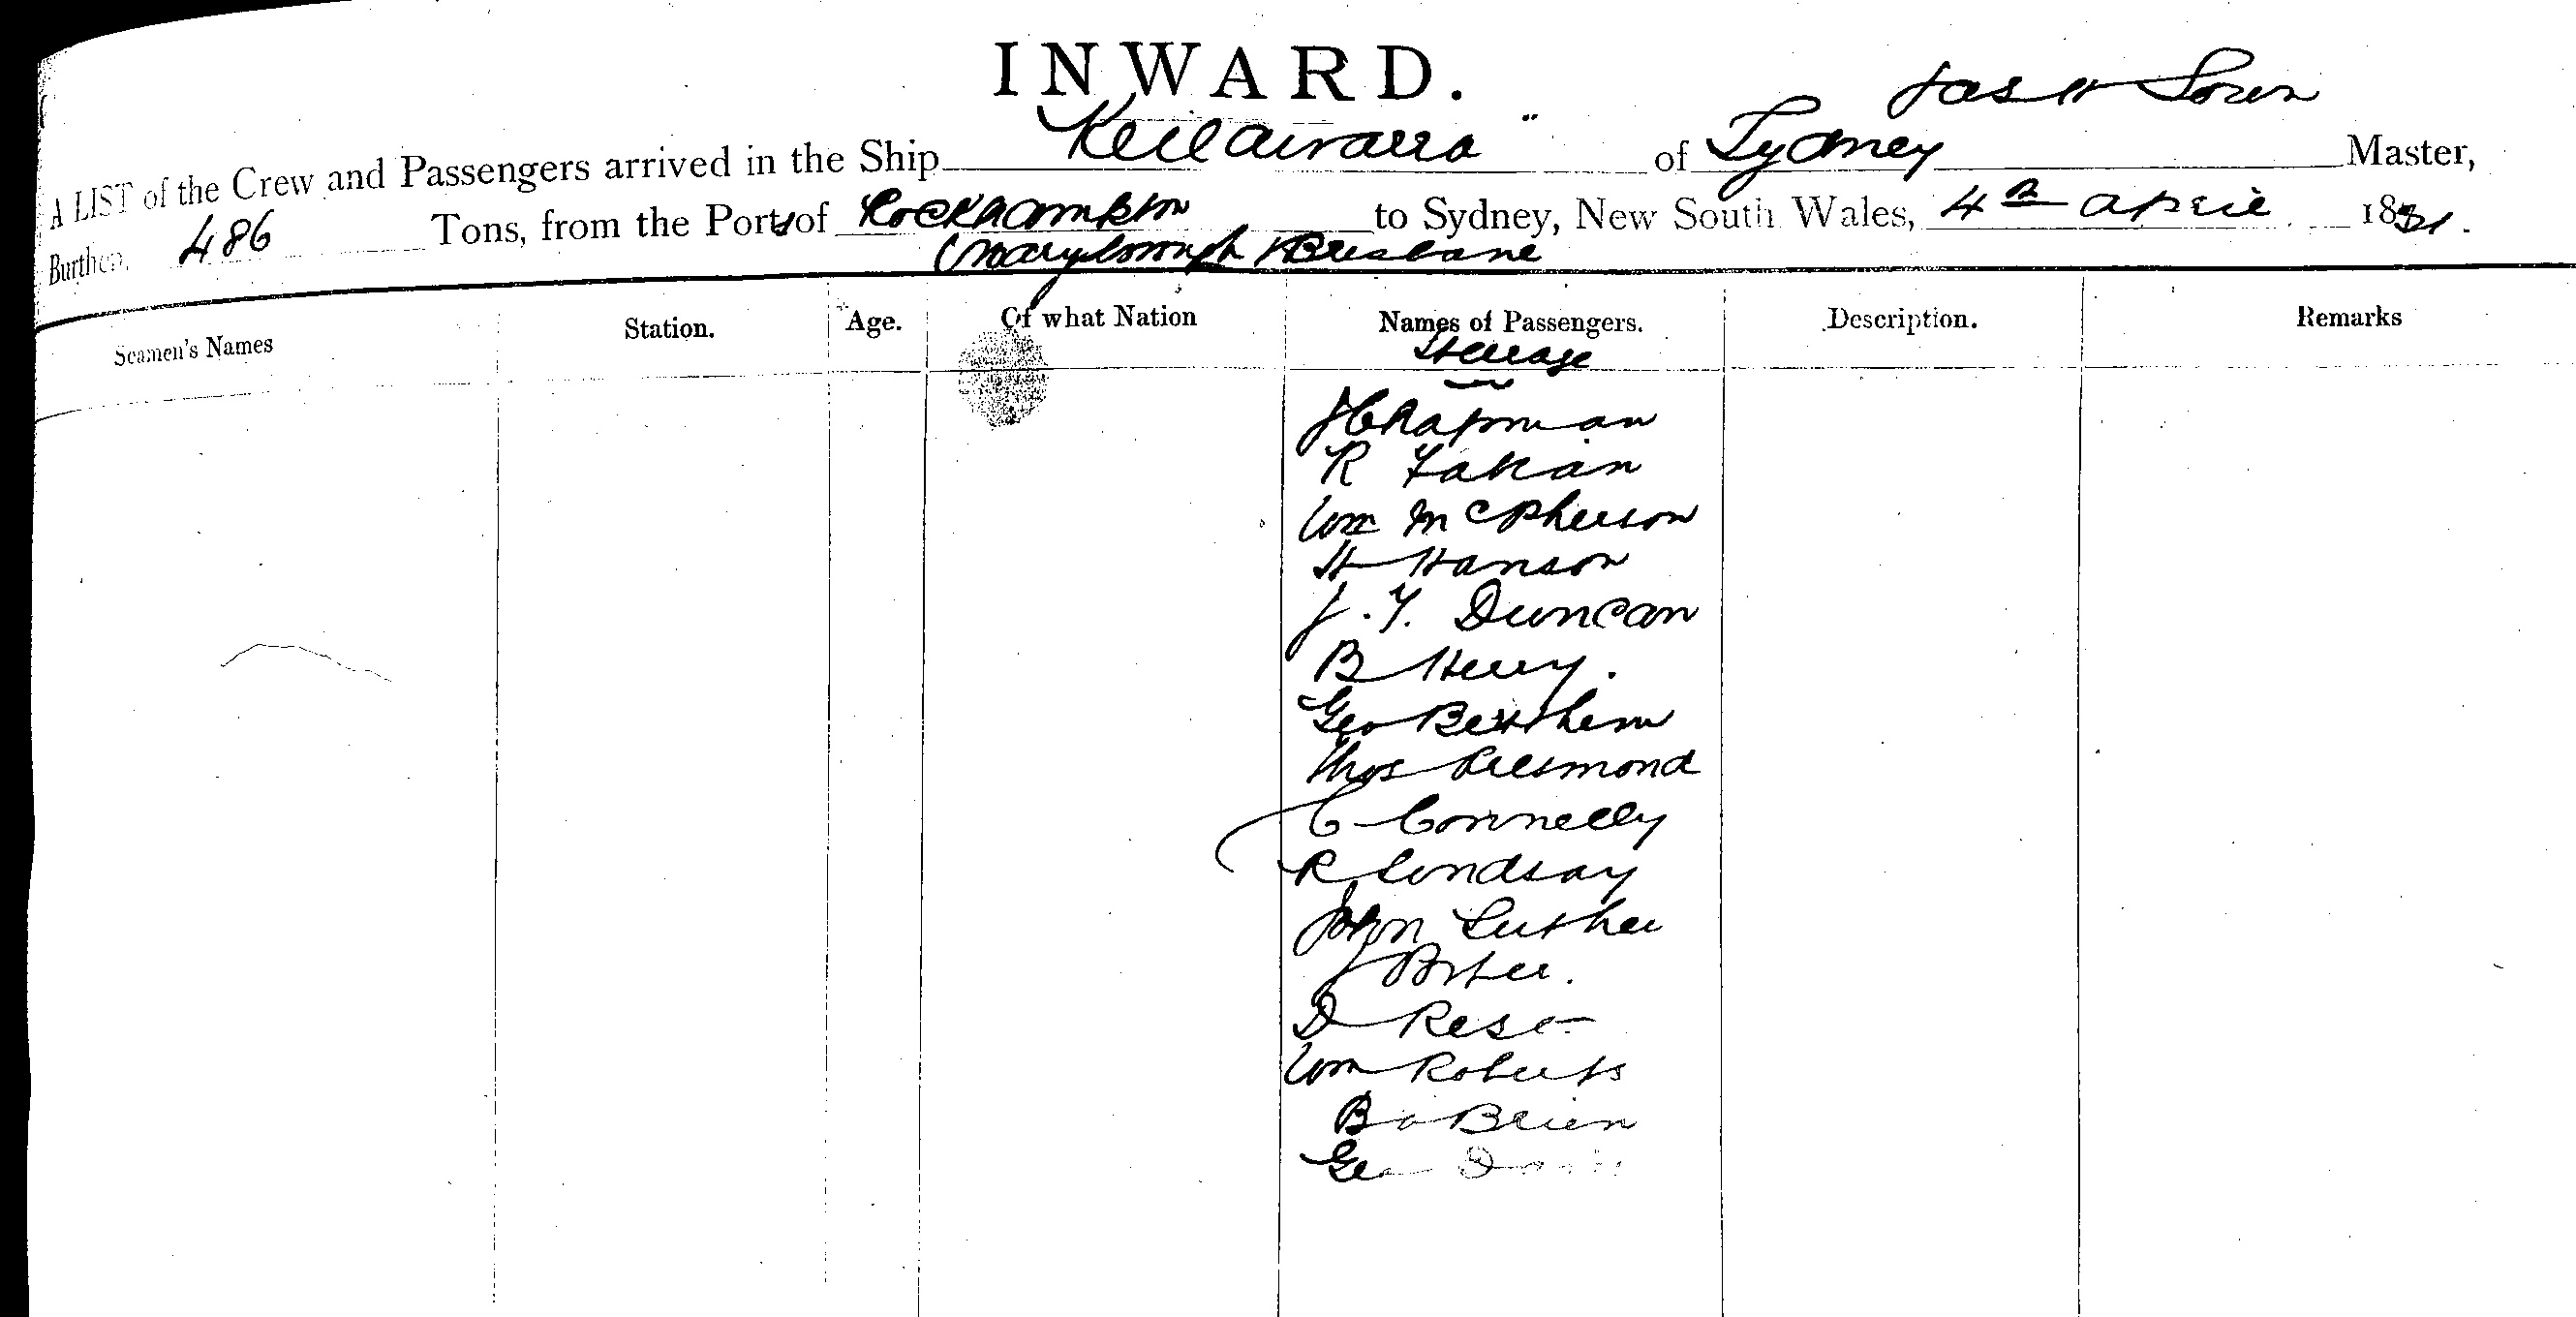 INWARD.
Jas H
A LIST of the Crew and Passengers arrived in the Ship "Keilawarra" of Sydney Master,
Burthen 486 Tons, from the Ports of Rockhampton to Sydney, New South Wales, 4th April 1881.
Maryborough & Brisbane
Seamen's Names Station. Age. Of what Nation Names of Passengers. Description. Remarks
Steerage
J Chapman
R Fahan
Wm McPherson
H Hanson
J. Y. Duncan
B Henry.
Geo
Thos
C Connelly
R Lindsay
John Luther
J Porter.
D
Wm Roberts
B o Brien
Geo